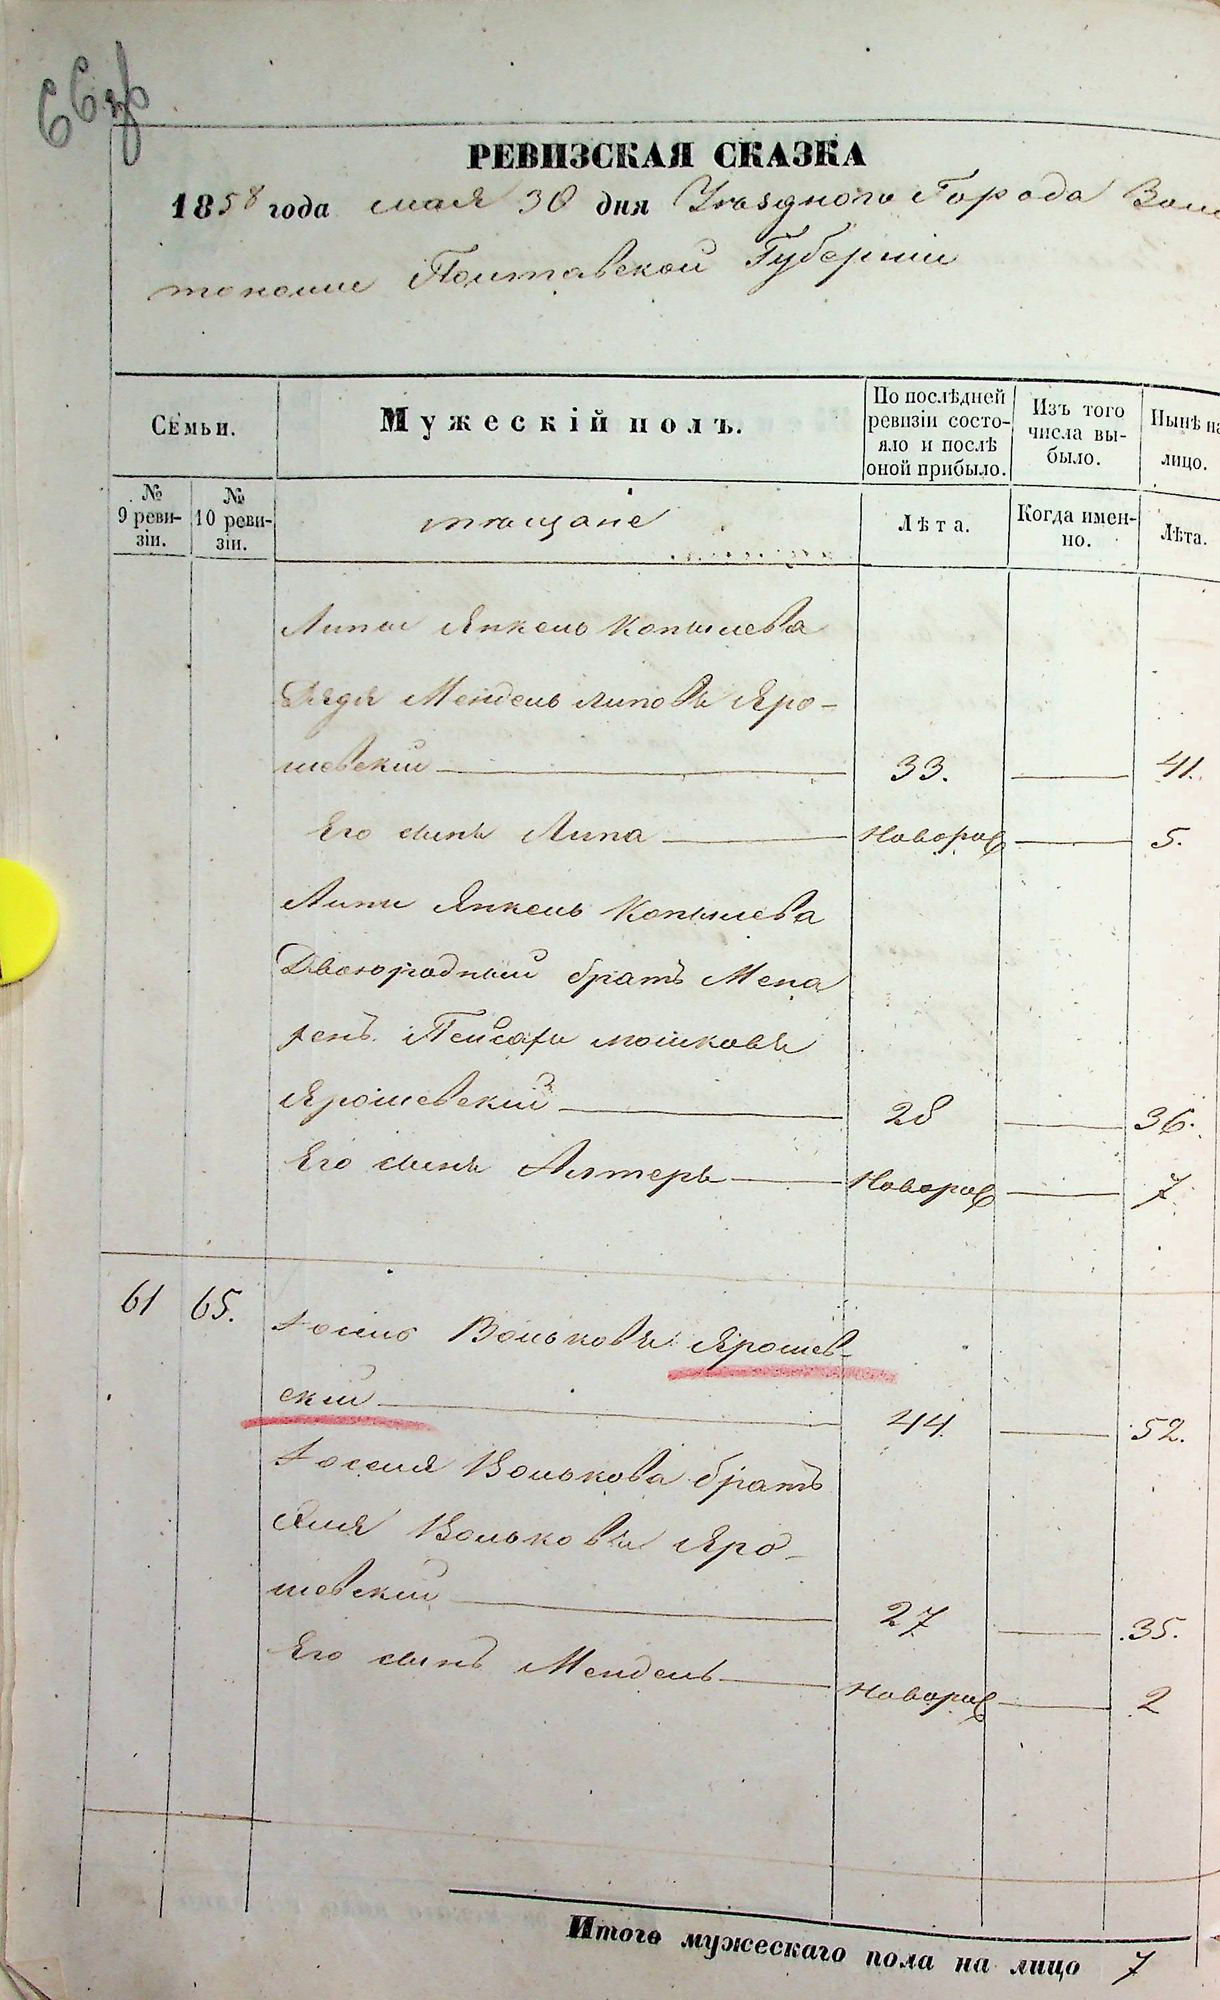 66 об
РЕВИЗСКАЯ СКАЗКА
1858 года мая 30 дня Уѣзднаго Города Золо
тоноши Полтавской Губерніи
Семьи.
Мужескій полъ.
По послѣдней ревизіи состояло и послѣ оной прибыло.
Изъ того числа выбыло.
Нынѣ на лицо.
№ 9 ревизіи.
№ 10 ревизіи.
мѣщане
Лѣта.
Когда именно.
Лѣта.
Липы Янкель Копылева
Дядя Мендель Липовъ Яро-
шевскій 33. 41.
Его сынъ Липа Новорож 5.
Липы Янкель Копылева
Двоюродный братъ Мена
хенъ Пейсахъ Мошковъ
Ярошевскій 28 36.
Его сынъ Алтеръ Новорож 7
61 65. Іосель Вольковъ Ярошев-
скій 44. 52.
Іоселя Волькова братъ
Эля Вольковъ Яро-
шевскій 27 35.
Его сынъ Мендель Новорож 2
Итого мужескаго пола на лицо 7